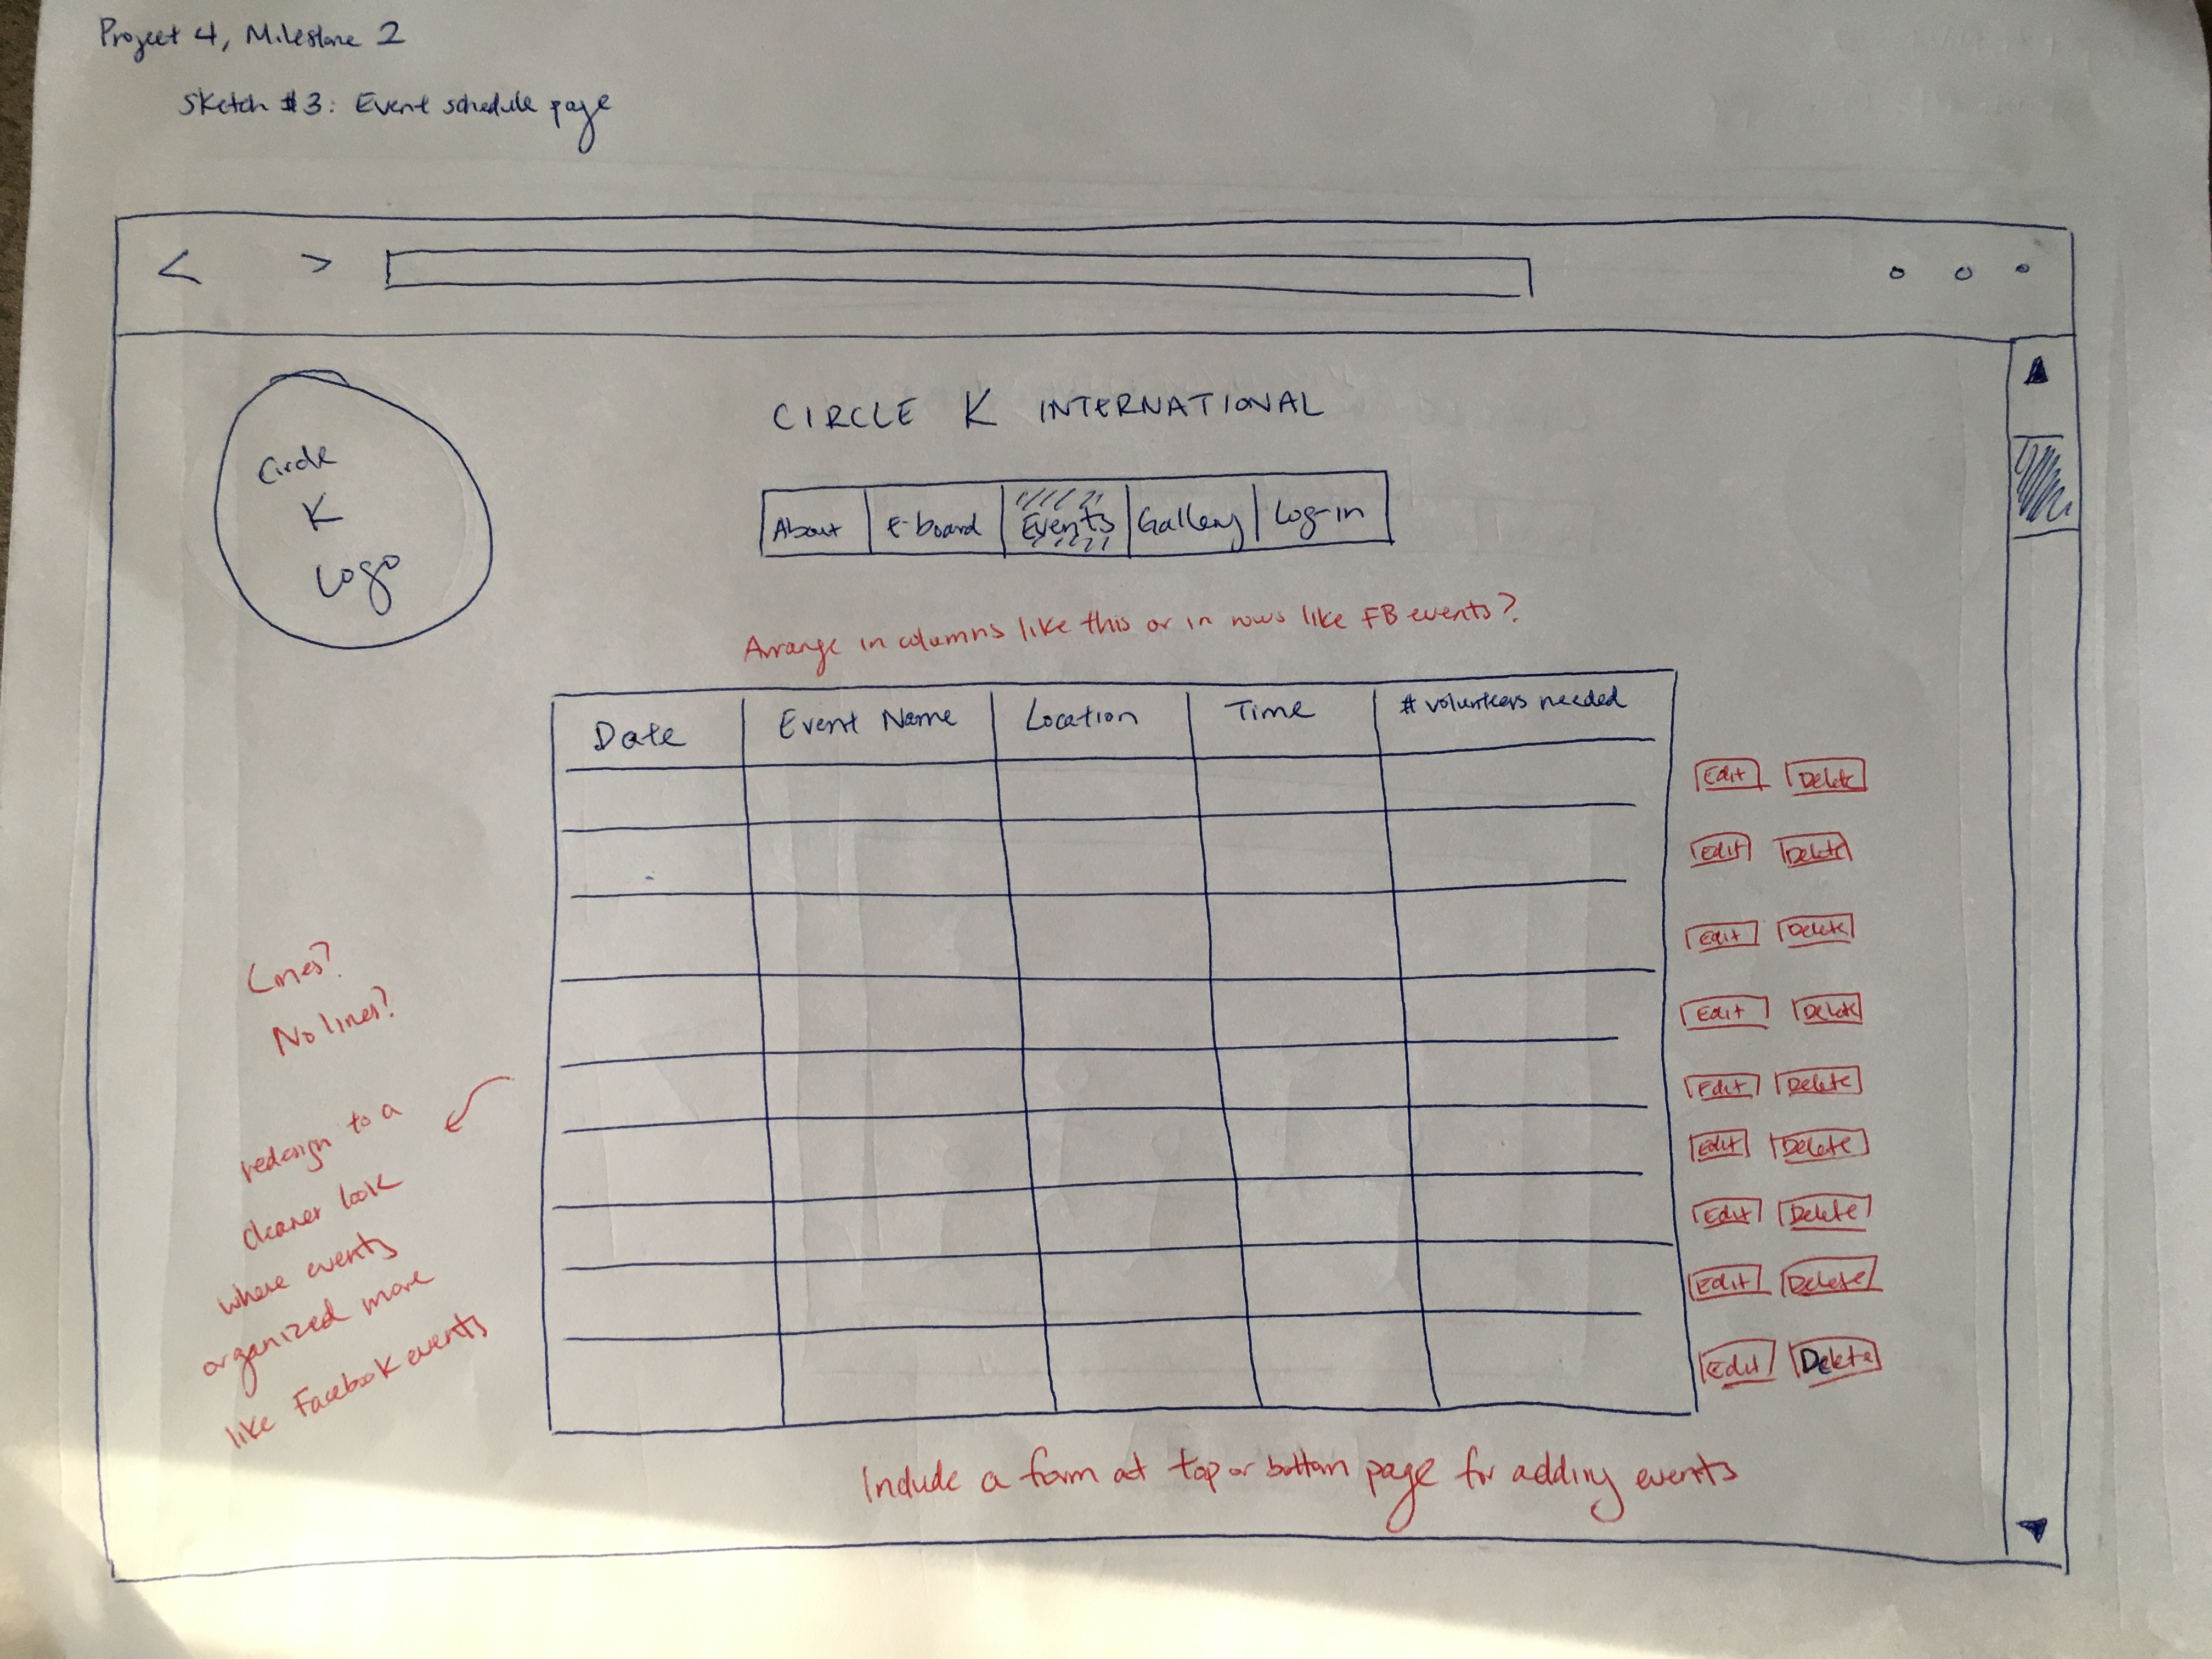 Project 4, Milestone 2
Sketch #3: Event schedule page
< >
Circle
K
Logo
CIRCLE K INTERNATIONAL
About e-board Events Gallery Log-in
Arrange in columns like this or in rows like FB events?
Date Event Name Location Time # volunteers needed
Edit Delete
Edit Delete
Edit Delete
Edit Delete
Edit Delete
Edit Delete
Edit Delete
Edit Delete
Edit Delete
Lines?
No lines?
redesign to a
cleaner look
where events
organized more
like Facebook events
Include a form at top or bottom page for adding events